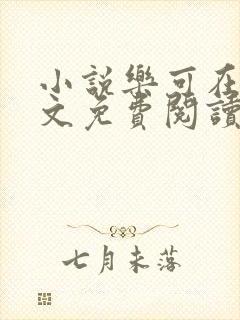 小說樂可在
文免費閱讀
七月未落